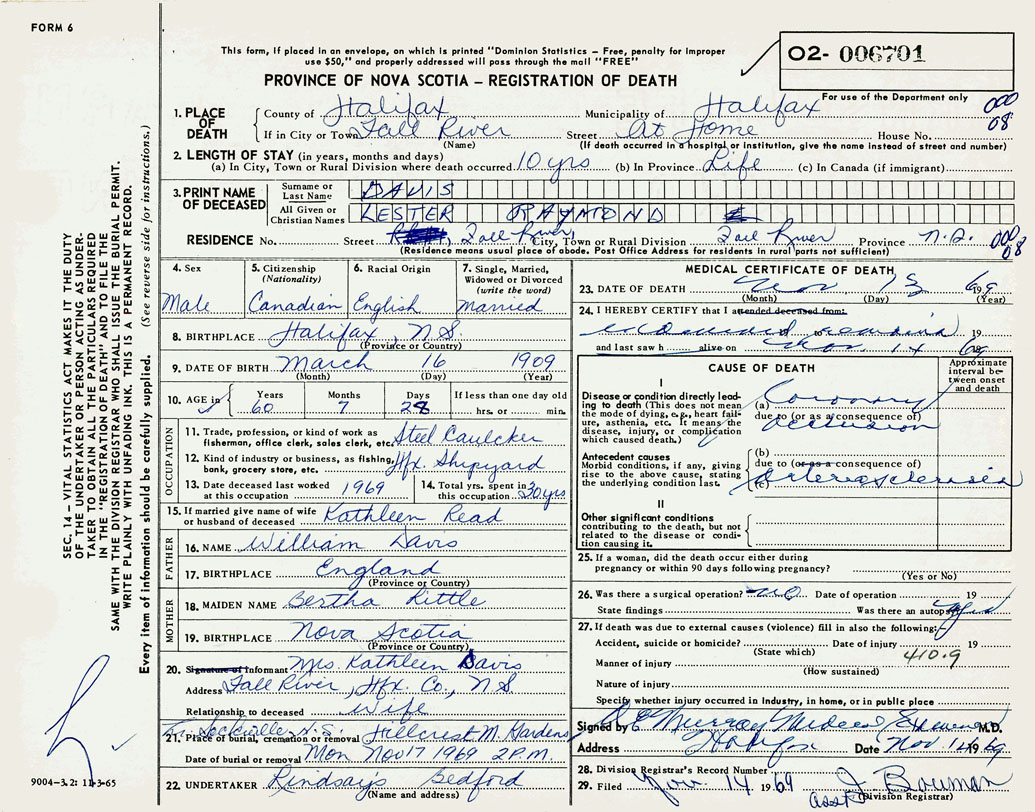 FORM 6
This form, if placed in an envelope, on which is printed "Dominion Statistics – Free, penalty for improper
use $50," and properly addressed will pass through the mail "FREE"
O2- 006701
PROVINCE OF NOVA SCOTIA – REGISTRATION OF DEATH
For use of the Department only
1. PLACE OF DEATH
County of Halifax Municipality of Halifax 000
If in City or Town Fall River Street At Home House No. 08
(Name) (If death occurred in a hospital or institution, give the name instead of street and number)
2. LENGTH OF STAY (in years, months and days)
(a) In City, Town or Rural Division where death occurred 10 yrs (b) In Province Life (c) In Canada (if immigrant)
3. PRINT NAME OF DECEASED
Surname or Last Name DAVIS
All Given or Christian Names LESTER RAYMOND
RESIDENCE No. Street Fall River City, Town or Rural Division Fall River Province N.S. 000 08
(Residence means usual place of abode. Post Office Address for residents in rural parts not sufficient)
4. Sex Male
5. Citizenship (Nationality) Canadian
6. Racial Origin English
7. Single, Married, Widowed or Divorced (write the word) Married
8. BIRTHPLACE Halifax, N.S.
(Province or Country)
9. DATE OF BIRTH March 16 1909
(Month) (Day) (Year)
10. AGE in Years 60 Months 7 Days 28 If less than one day old hrs. or min.
OCCUPATION
11. Trade, profession, or kind of work as fisherman, office clerk, sales clerk, etc. Steel Caulcker
12. Kind of industry or business, as fishing, bank, grocery store, etc. Hfx. Shipyard
13. Date deceased last worked at this occupation 1969
14. Total yrs. spent in this occupation 30 yrs
15. If married give name of wife or husband of deceased Kathleen Read
FATHER
16. NAME William Davis
17. BIRTHPLACE England
(Province or Country)
MOTHER
18. MAIDEN NAME Bertha Kittle
19. BIRTHPLACE Nova Scotia
(Province or Country)
20. Signature of Informant Mrs. Kathleen Davis
Address Fall River, Hfx. Co., N.S.
Relationship to deceased Wife
Sackville N.S.
21. Place of burial, cremation or removal Hillcrest M. Gardens
Date of burial or removal Mon Nov 17 1969 2 P.M.
22. UNDERTAKER Lindsay's Bedford
(Name and address)
MEDICAL CERTIFICATE OF DEATH
23. DATE OF DEATH Nov 13 1969
(Month) (Day) (Year)
24. I HEREBY CERTIFY that I attended deceased from:
examined to remains 19
and last saw h alive on Nov. 14 1969
CAUSE OF DEATH
Approximate interval between onset and death
I
Disease or condition directly leading to death (This does not mean the mode of dying, e.g., heart failure, asthenia, etc. It means the disease, injury, or complication which caused death.)
(a) Coronary
due to (or as a consequence of)
occlusion
Antecedent causes
Morbid conditions, if any, giving rise to the above cause, stating the underlying condition last.
(b)
due to (or as a consequence of)
(c) arteriosclerosis
II
Other significant conditions
contributing to the death, but not related to the disease or condition causing it.
25. If a woman, did the death occur either during
pregnancy or within 90 days following pregnancy?
(Yes or No)
26. Was there a surgical operation? NO Date of operation 19
State findings Was there an autopsy?
27. If death was due to external causes (violence) fill in also the following:
Accident, suicide or homicide? Date of injury 19
(State which) 410.9
Manner of injury
(How sustained)
Nature of injury
Specify whether injury occurred in Industry, in home, or in public place
Signed by Murray M.D.
Address Halifax Date Nov. 14 1969
28. Division Registrar's Record Number
29. Filed Nov. 14 1969 J. Bowman
asst (Division Registrar)
SEC. 14 – VITAL STATISTICS ACT MAKES IT THE DUTY
OF THE UNDERTAKER OR PERSON ACTING AS UNDER-
TAKER TO OBTAIN ALL THE PARTICULARS REQUIRED
IN THE "REGISTRATION OF DEATH" AND TO FILE THE
SAME WITH THE DIVISION REGISTRAR WHO SHALL ISSUE THE BURIAL PERMIT.
WRITE PLAINLY WITH UNFADING INK. THIS IS A PERMANENT RECORD.
Every item of information should be carefully supplied. (See reverse side for instructions.)
9004–3.2: 11-3-65